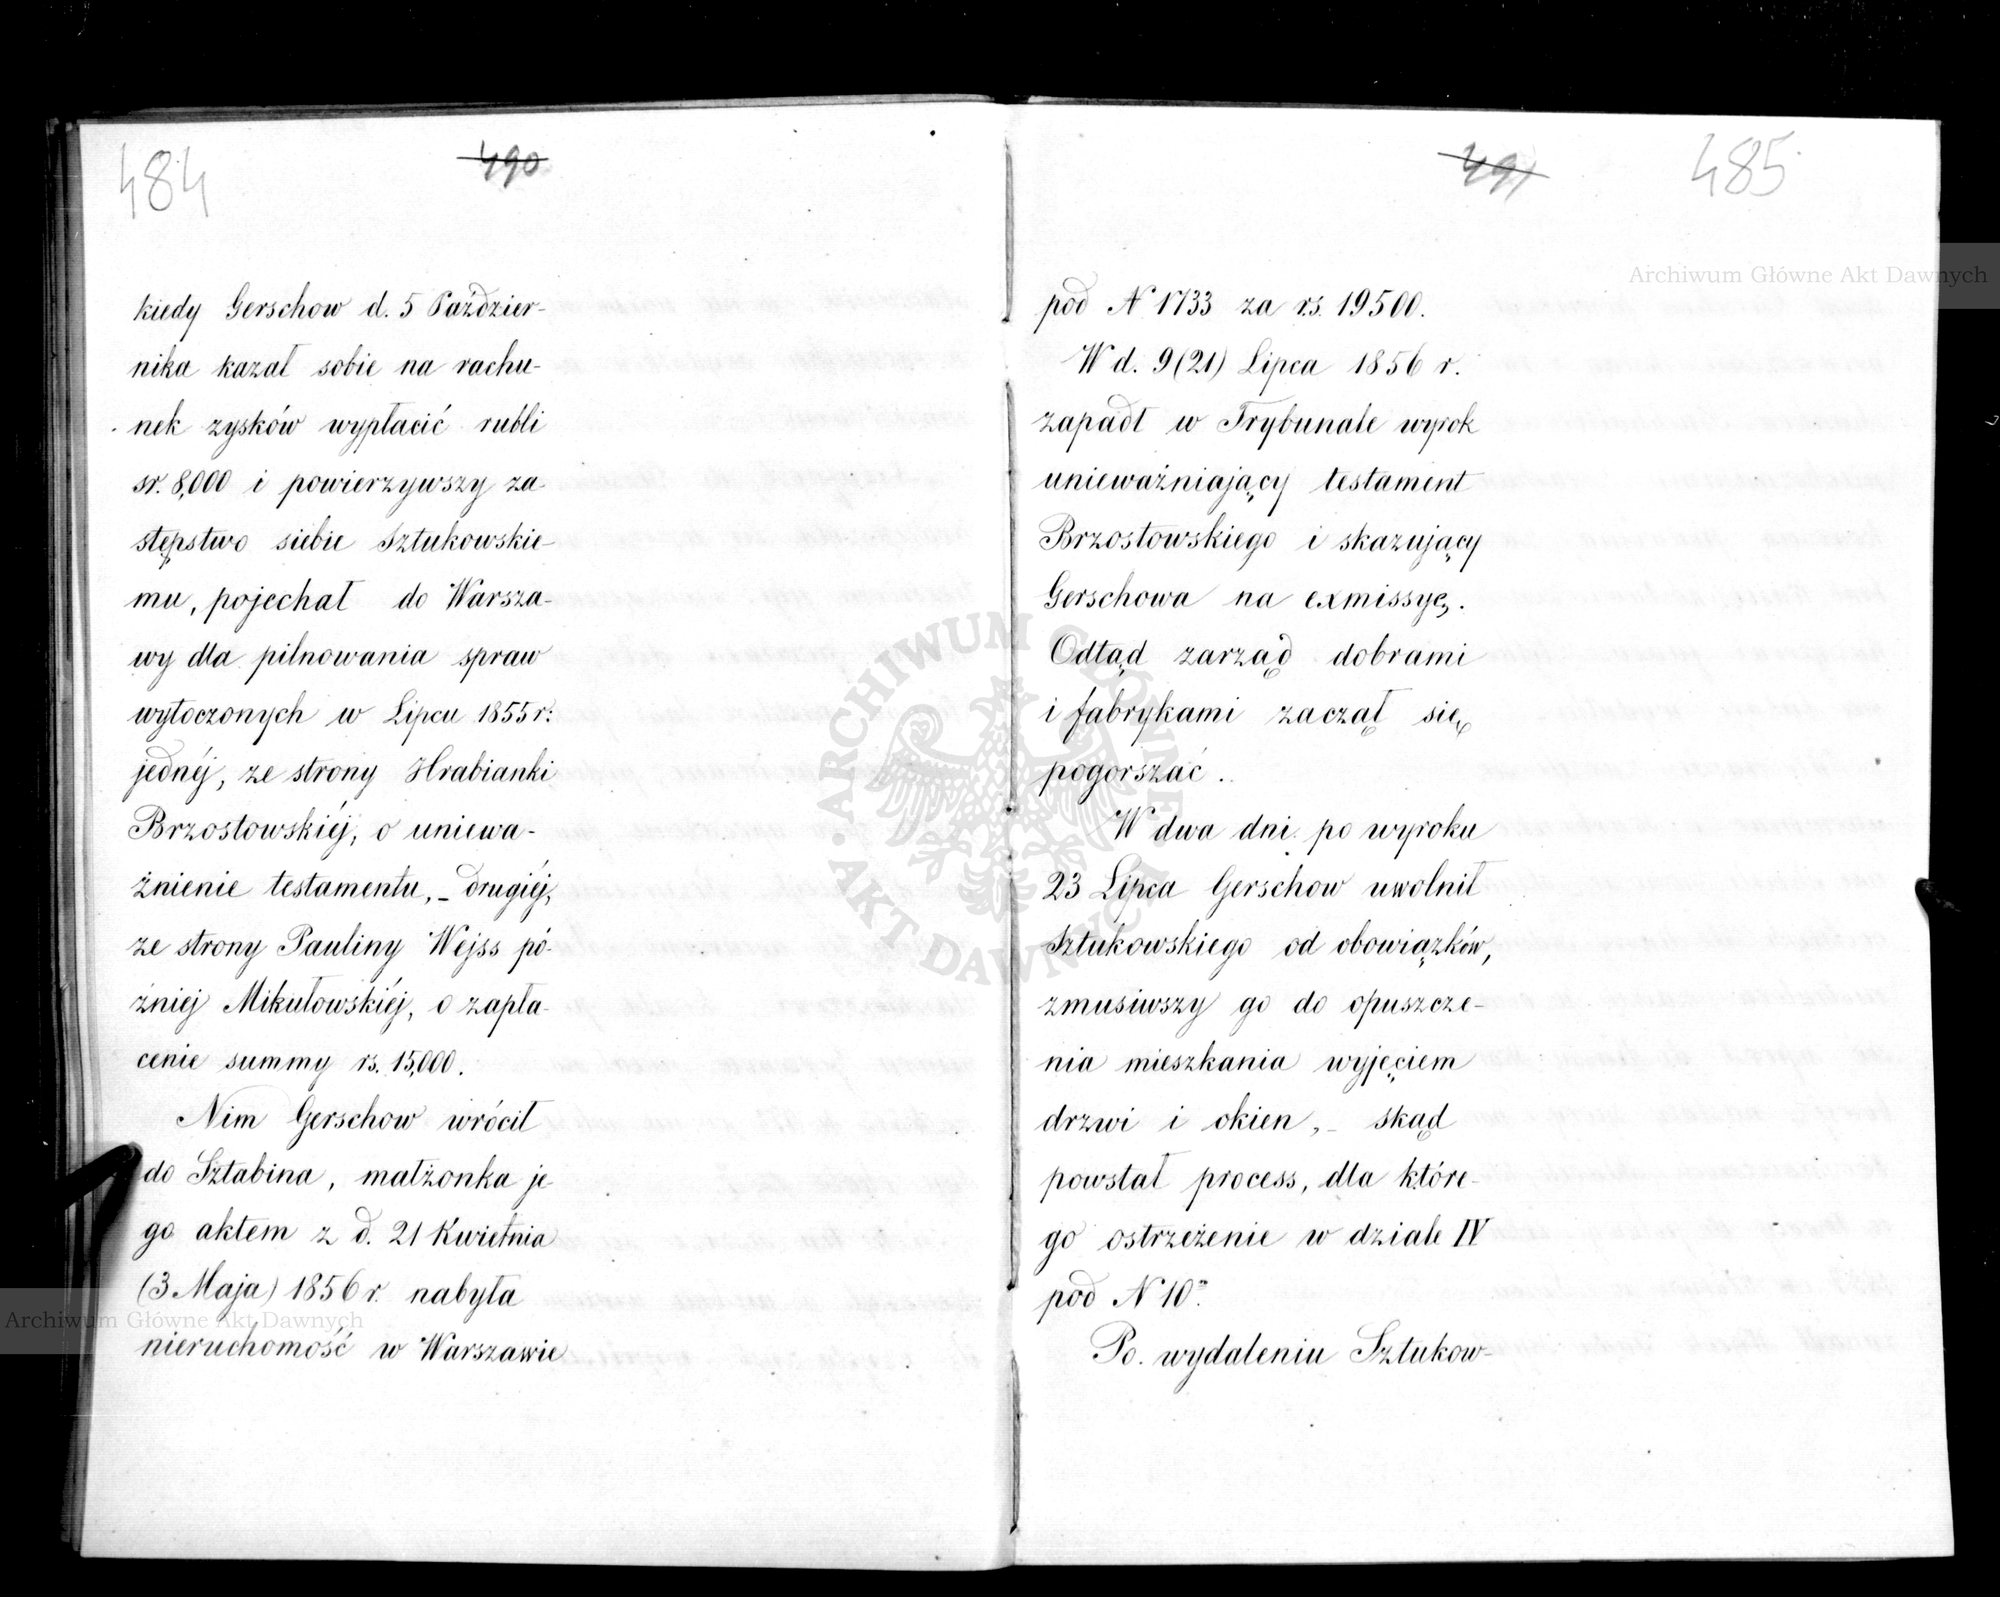 484
490
kiedy Gerschow d. 5 Paździer-
nika kazał sobie na rachu-
nek zysków wypłacić rubli
sr. 8,000 i powierzywszy za
stępstwo siebie Sztukowskie-
mu, pojechał do Warsza-
wy dla pilnowania spraw
wytoczonych w Lipcu 1855 r.
jednéj, ze strony Hrabianki
Brzostowskiéj, o uniewa-
żnienie testamentu, – drugiéj,
ze strony Pauliny Wejss pó-
źniej Mikułowskiéj, o zapła-
cenie summy rs. 15,000.
Nim Gerschow wrócił
do Sztabina, małżonka je-
go aktem z d. 21 Kwietnia
(3 Maja) 1856 r. nabyła
nieruchomość w Warszawie
491
485
pod N 1733 za rs. 19500.
W d. 9 (21) Lipca 1856 r.
zapadł w Trybunale wyrok
unieważniający testament
Brzostowskiego i skazujący
Gerschowa na exmissyę.
Odtąd zarząd dobrami
i fabrykami zaczął się
pogorszać.
W dwa dni po wyroku
23 Lipca Gerschow uwolnił
Sztukowskiego od obowiązków,
zmusiwszy go do opuszcze-
nia mieszkania wyjęciem
drzwi i okien, – skąd
powstał process, dla które-
go ostrzeżenie w dziale IV
pod N 10.
Po wydaleniu Sztukow-
Archiwum Główne Akt Dawnych
Archiwum Główne Akt Dawnych
ARCHIWUM GŁÓWNE AKT DAWNYCH